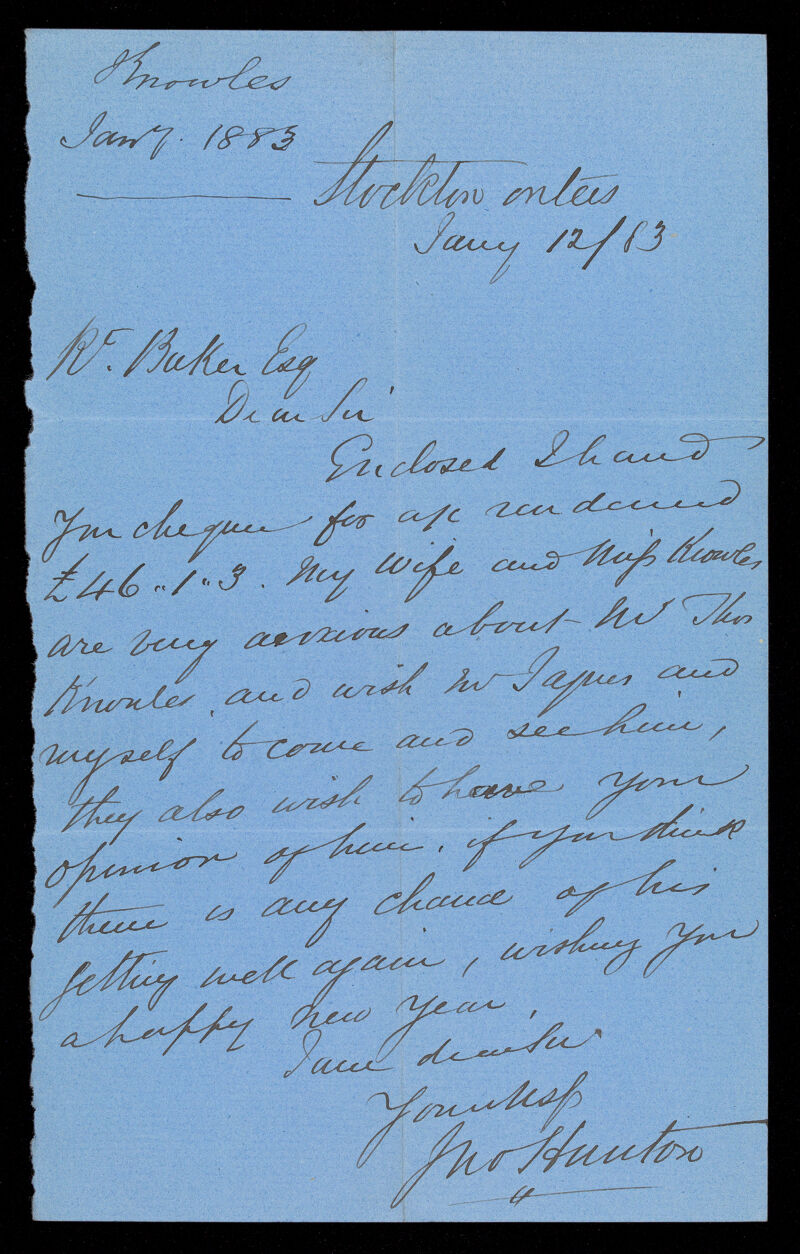 Knowles
Jany. 1883
Stockton on tees
Jany 12/83
Rt. Baker Esq
Dear Sir
Enclosed I hand
you cheque for a/c rendered
£46"1"3. My Wife and Miss Knowles
are very anxious about Mr Thos
Knowles, and wish Mr Jaques and
myself to come and see him,
they also wish to have your
opinion of him, if you think
there is any chance of his
getting well again, wishing you
a happy new year,
I am dear Sir
Yours
Jno Hunton